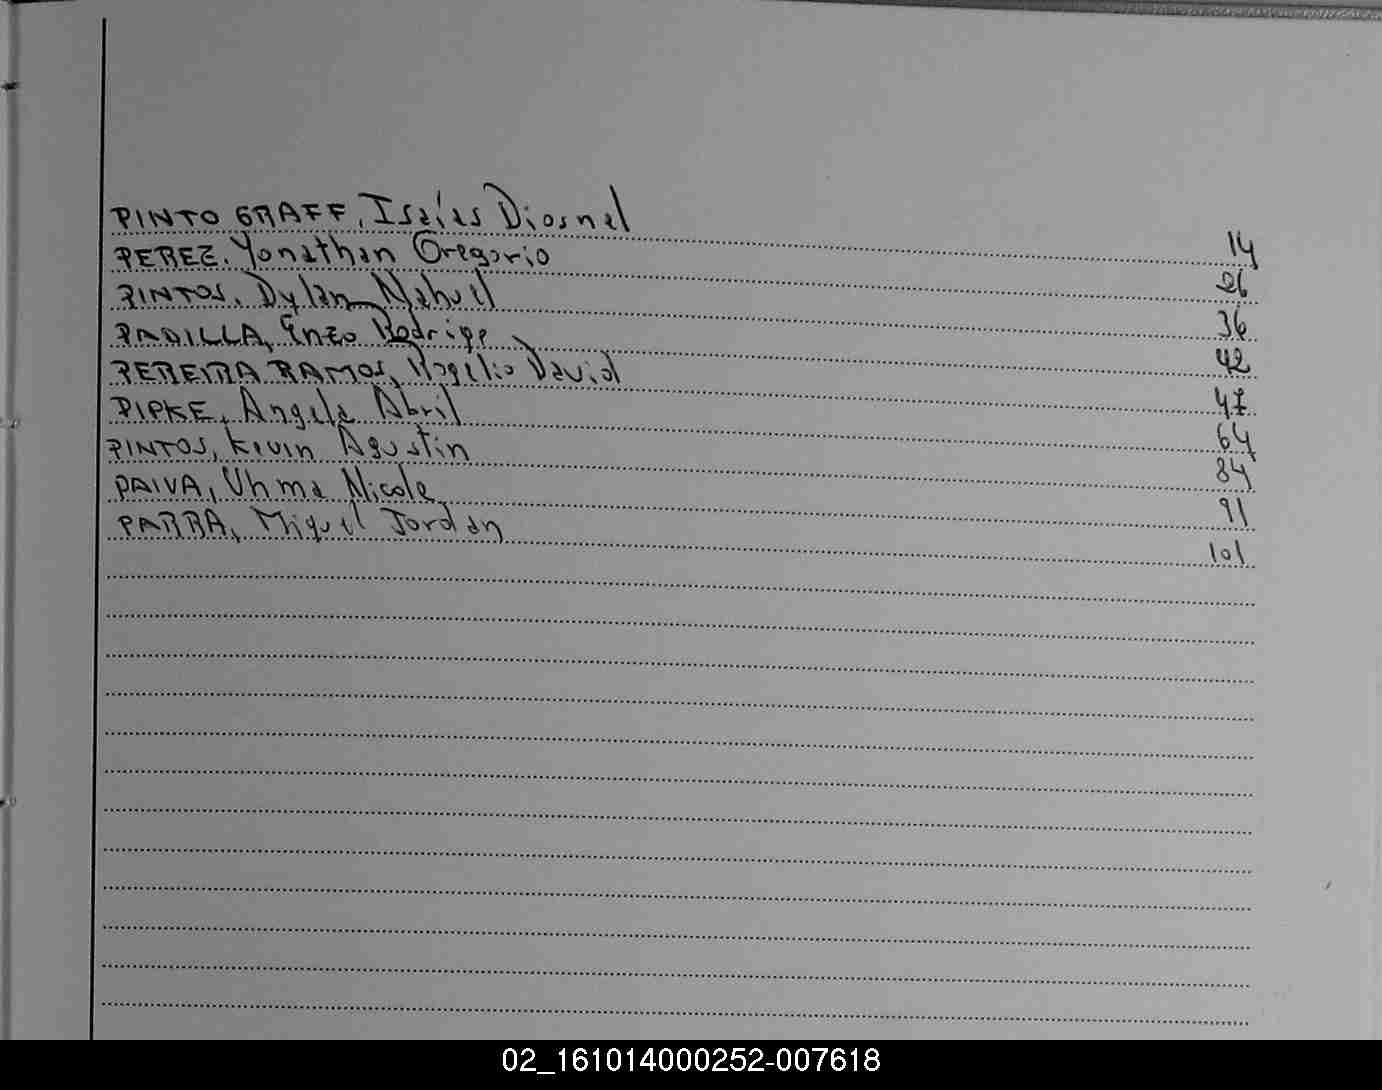 PINTO GRAFF, Isaías Diosnel 14
PEREZ, Yonathan Gregorio 26
PINTOS, Dylan Nahuel 36
PADILLA, Enzo Rodrigo 42
PEREIRA RAMOS, Rogelio David 47
PIPKE, Angela Abril 64
PINTOS, Kevin Agustin 84
PAIVA, Uhma Nicole 91
PARRA, Miguel Jordan 101
02_161014000252-007618